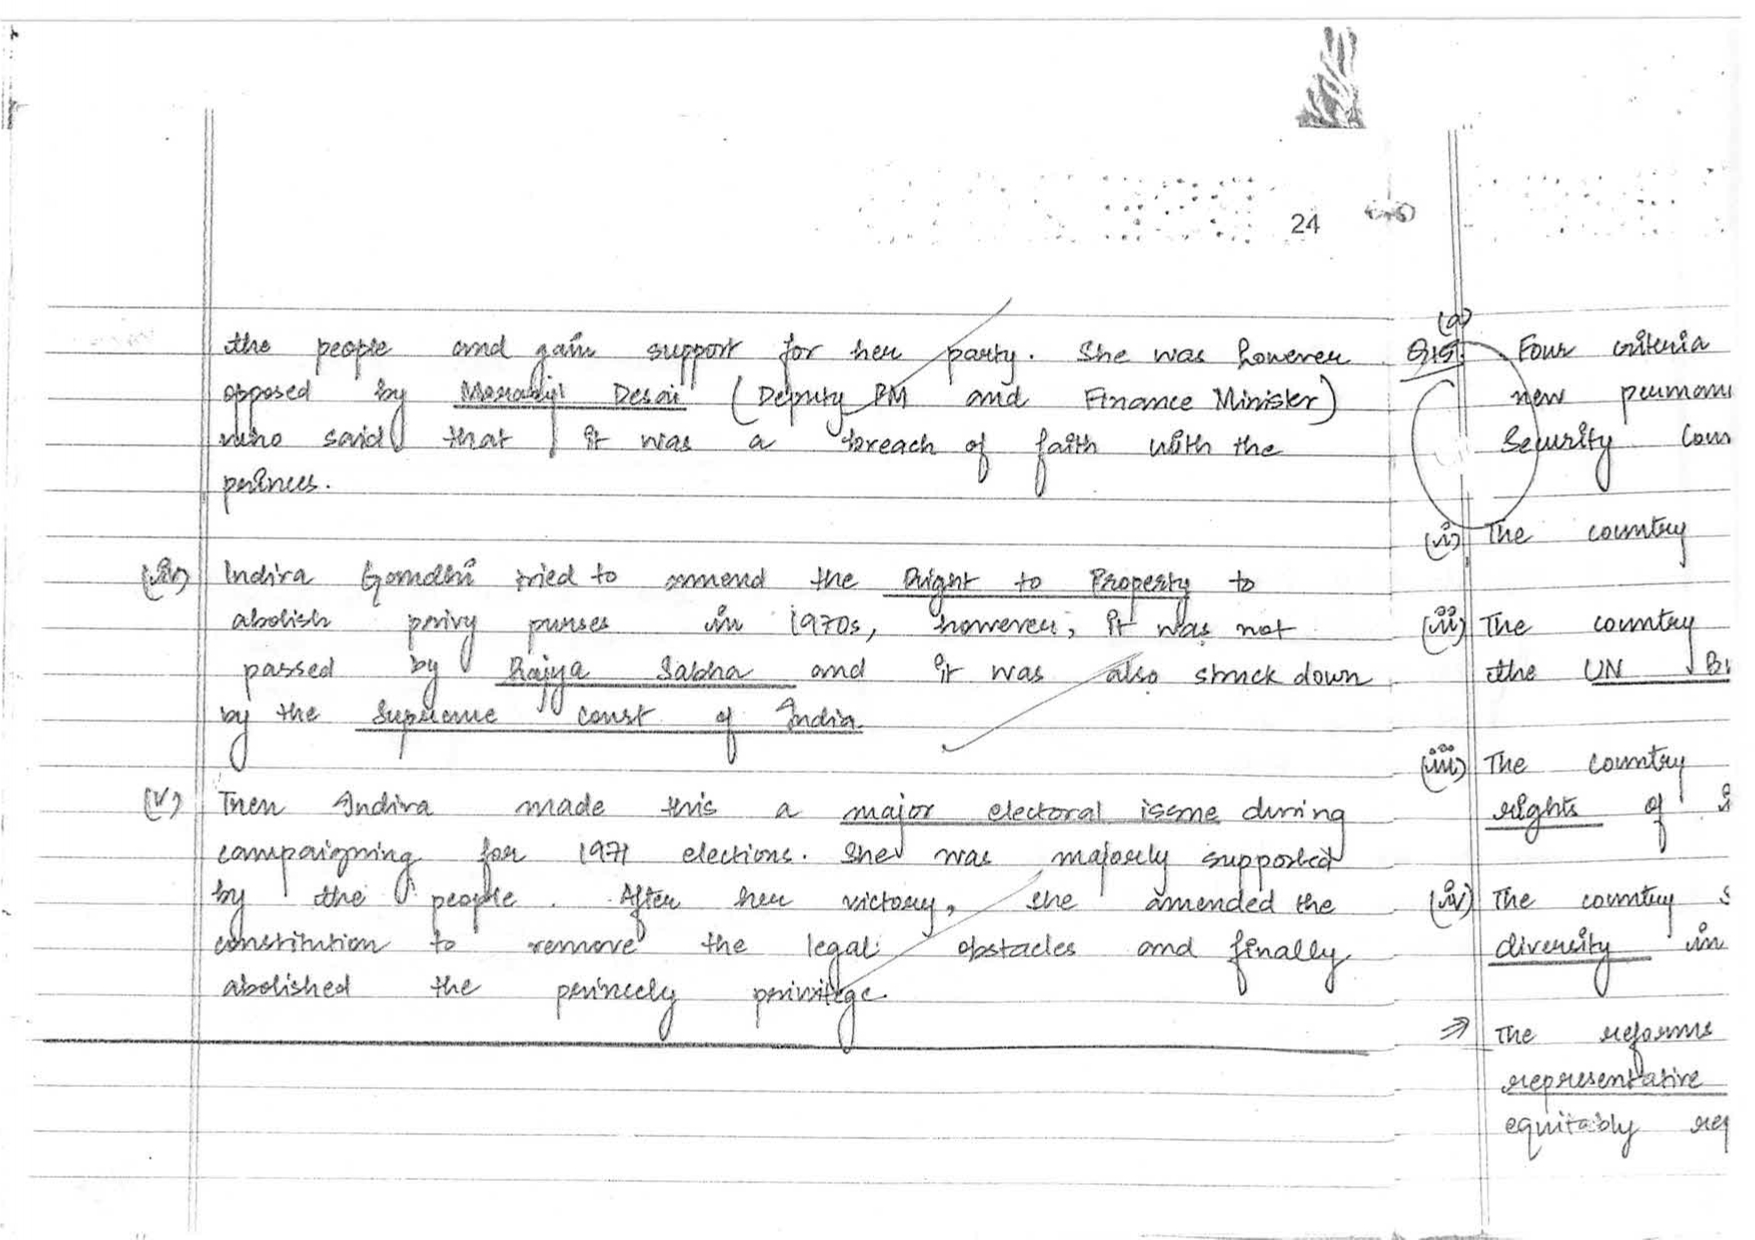 24
the people and gain support for her party. She was however
opposed by Morarji Desai (Deputy PM and Finance Minister)
who said that it was a breach of faith with the
princes.
(iv) Indira Gandhi tried to ammend the Right to Property to
abolish privy purses in 1970s, however, it was not
passed by Rajya Sabha and it was also struck down
by the Supreme Court of India.
(v) Then Indira made this a major electoral issue during
campaigning for 1971 elections. She was majorly supported
by the people. After her victory, she amended the
constitution to remove the legal obstacles and finally
abolished the princely privilege.
(a)
Four criteria
new perman
Security Coun
(i) The country
(ii) The country
the UN Bu
(iii) The country
rights of
(iv) The country s
diversity in
⇒ The reforms
representative
equitably rep